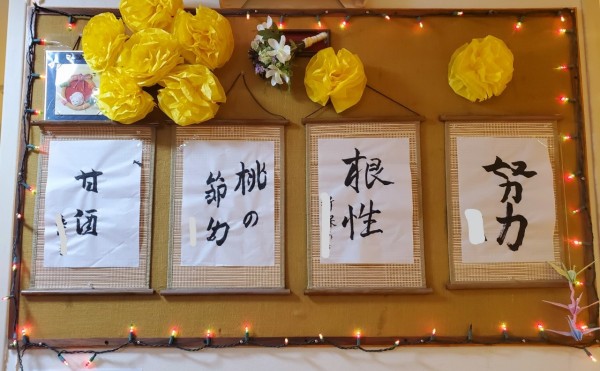 努力
根性
桃の
節句
甘酒